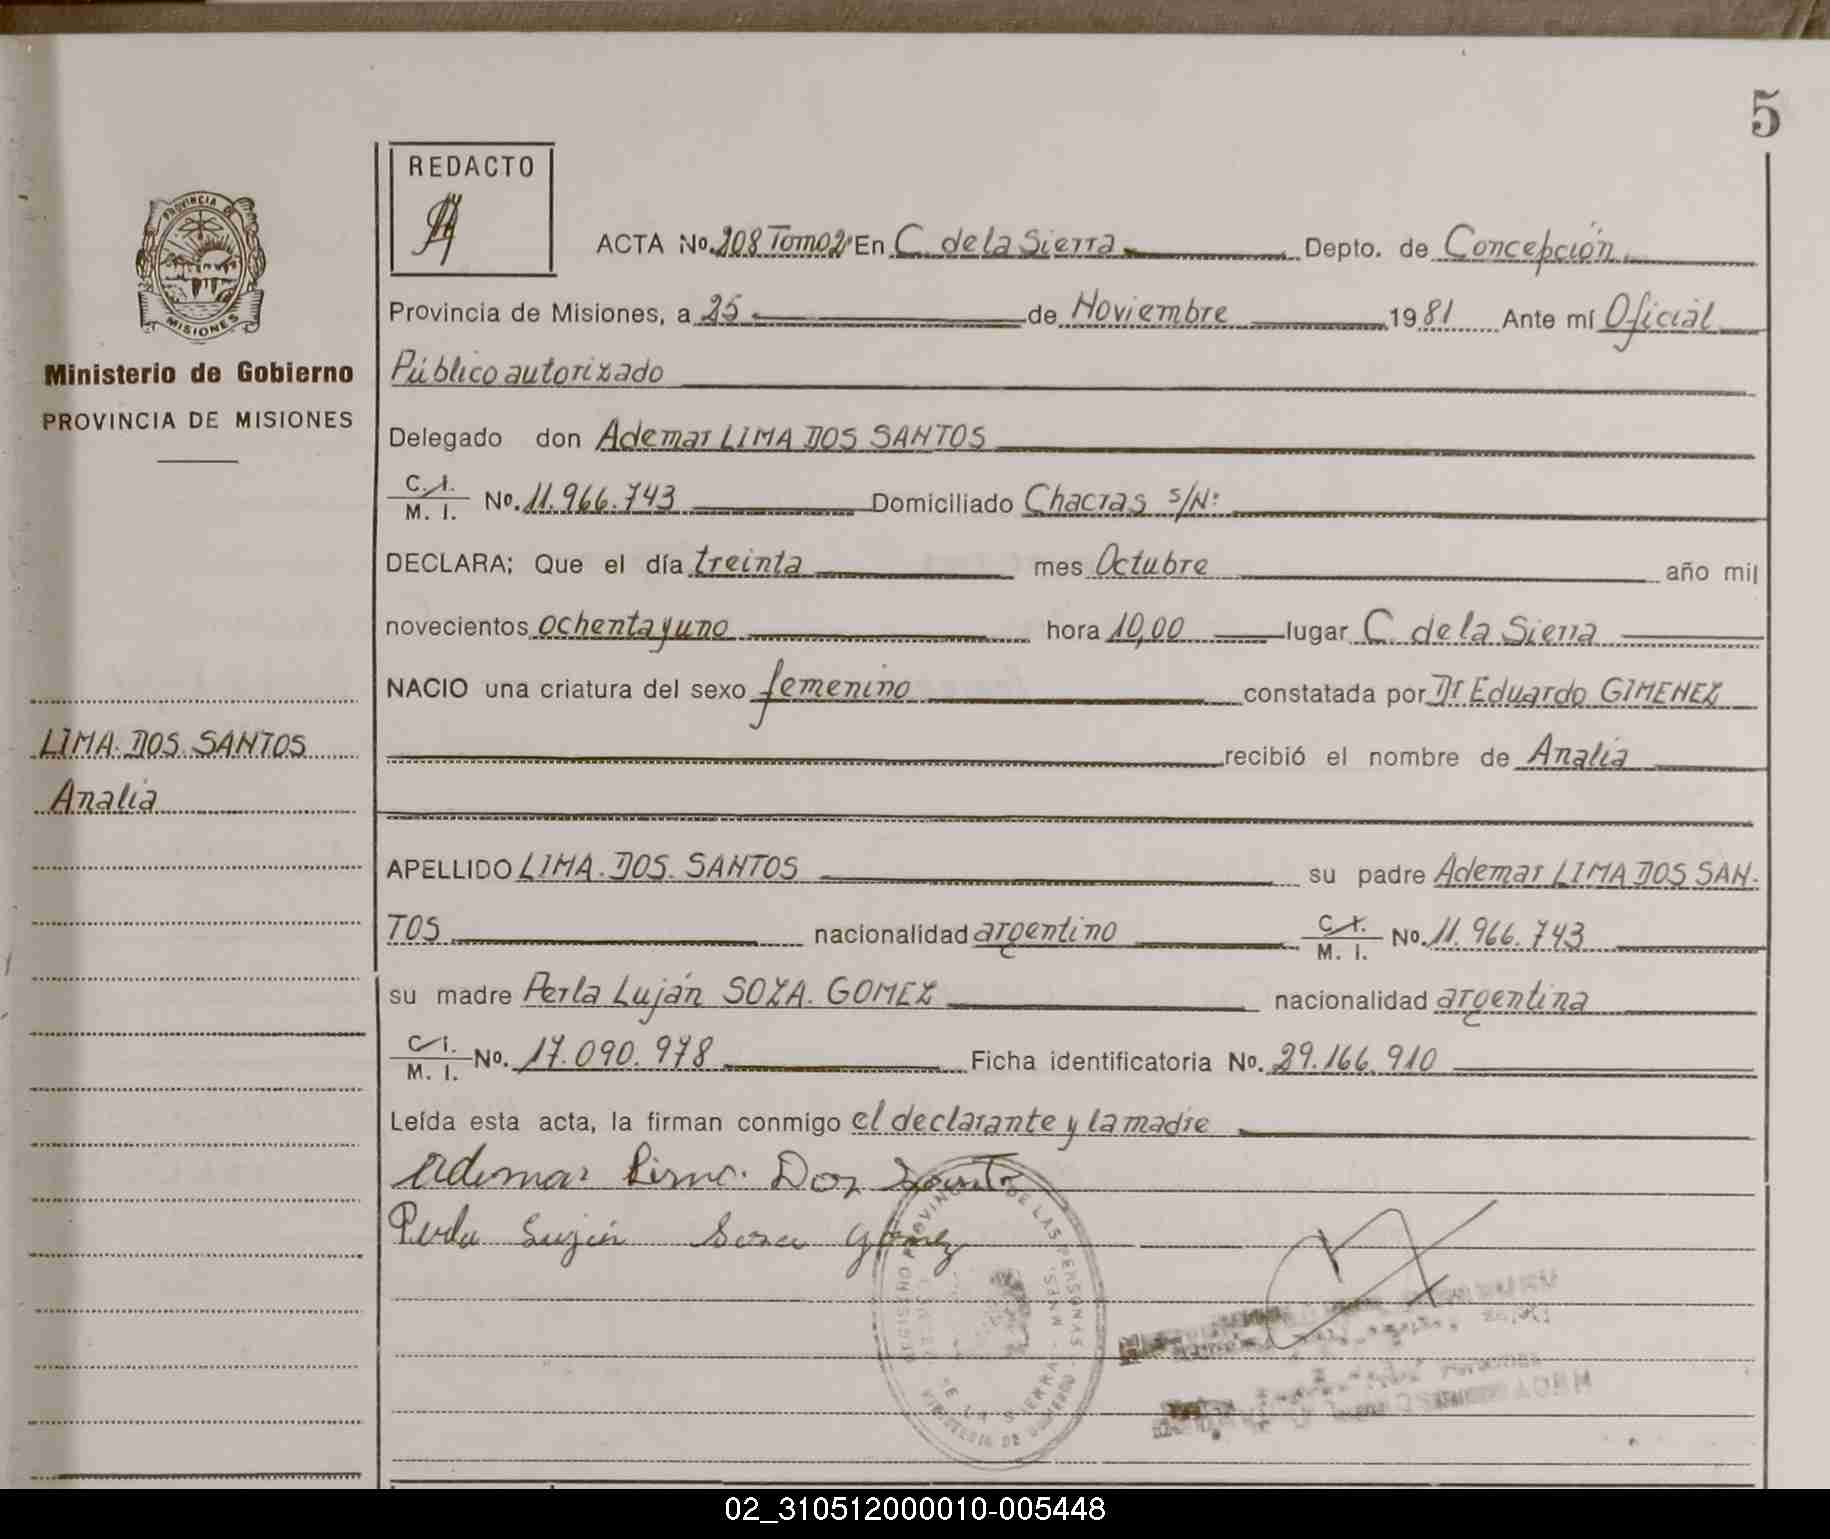 5
REDACTO
PROVINCIA DE
MISIONES
Ministerio de Gobierno
PROVINCIA DE MISIONES
LIMA DOS SANTOS
Analia
ACTA No. 208 Tomo 2º En C. de la Sierra Depto. de Concepción
Provincia de Misiones, a 25 de Noviembre 1981 Ante mí Oficial
Público autorizado
Delegado don Ademar LIMA DOS SANTOS
C. I. / M. I. No. 11.966.743 Domiciliado Chacras S/Nº
DECLARA; Que el día treinta mes Octubre año mil
novecientos ochenta y uno hora 10,00 lugar C. de la Sierra
NACIO una criatura del sexo femenino constatada por Dr Eduardo GIMENEZ
recibió el nombre de Analia
APELLIDO LIMA. DOS. SANTOS su padre Ademar LIMA DOS SAN-
TOS nacionalidad argentino C. I. / M. I. No. 11.966.743
su madre Perla Luján SOZA. GOMEZ nacionalidad argentina
C. I. / M. I. No. 17.090.978 Ficha identificatoria No. 29.166.910
Leída esta acta, la firman conmigo el declarante y la madre
Ademar Lima Dos Santo
Perla Luján Soza Gómez
DE LAS PERSONAS
02_310512000010-005448